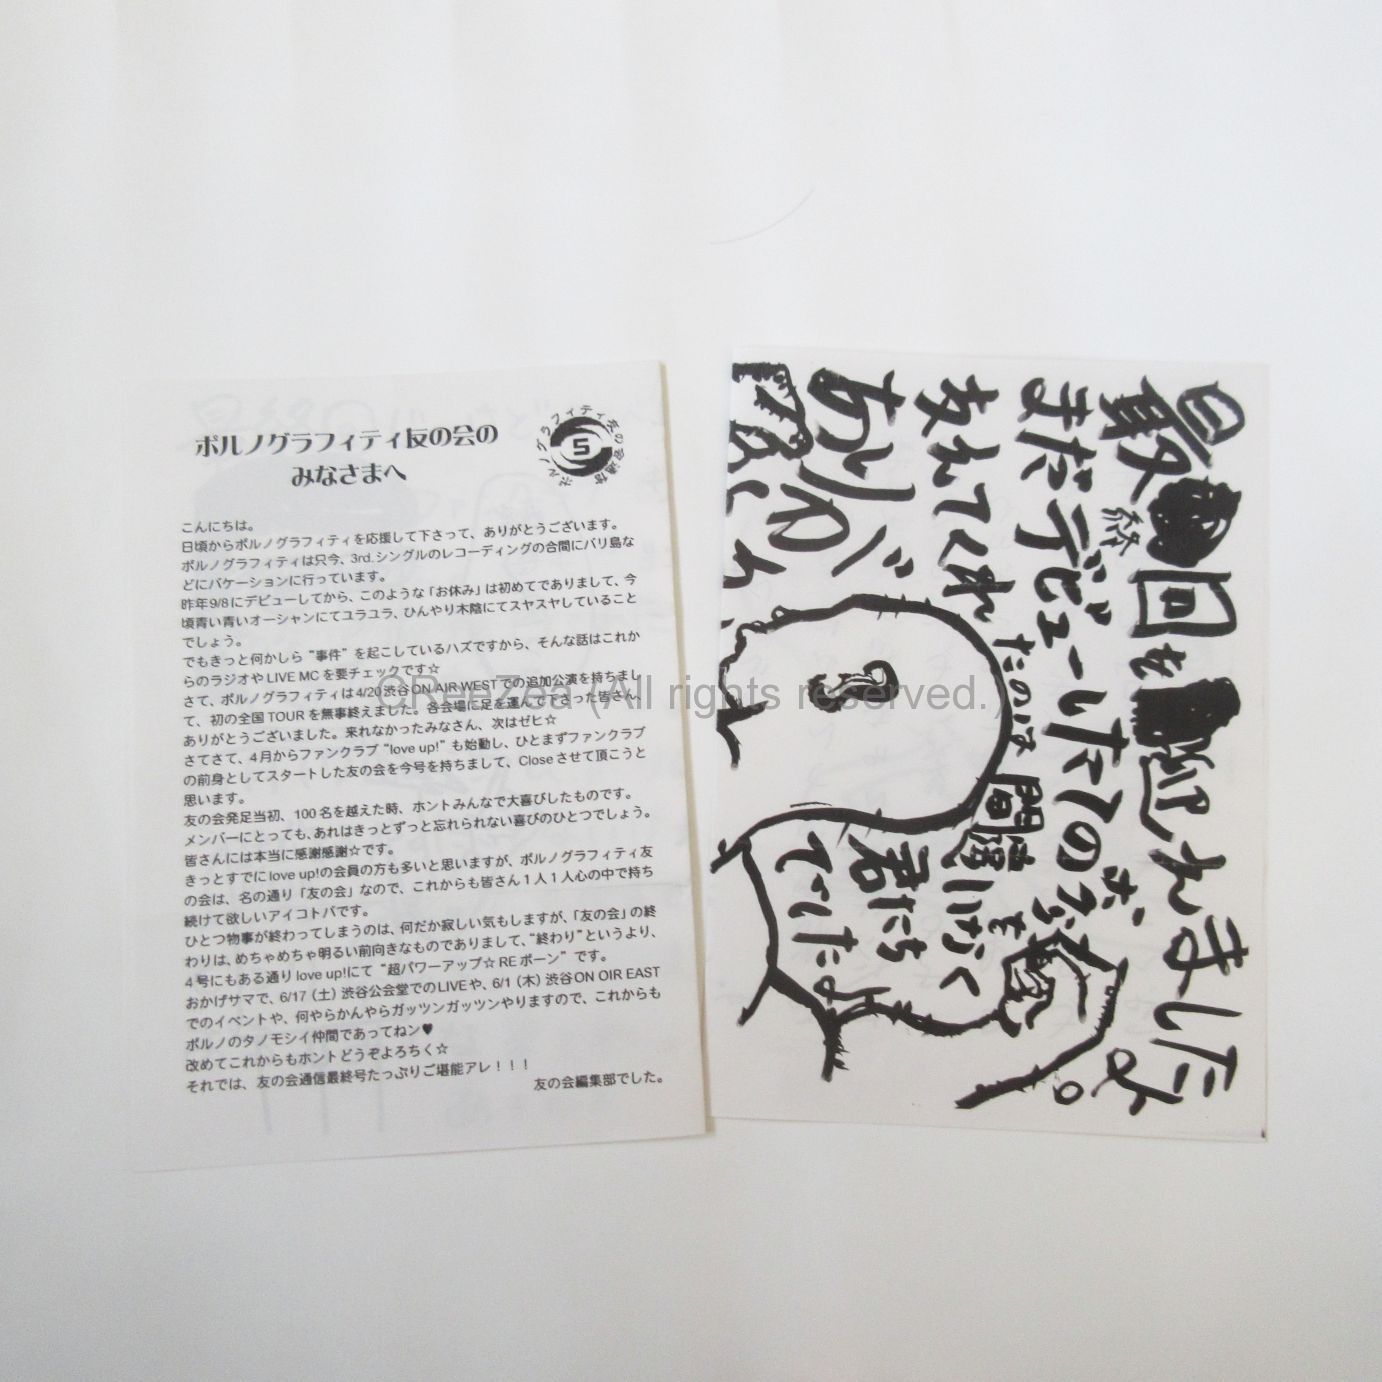 ポルノグラフィティ友の会の
みなさまへ
ポルノグラフィティ友の会通信
5
こんにちは。
日頃からポルノグラフィティを応援して下さって、ありがとうございます。
ポルノグラフィティは只今、3rd.シングルのレコーディングの合間にバリ島な
どにバケーションに行っています。
昨年9/8にデビューしてから、このような「お休み」は初めてでありまして、今
頃青い青いオーシャンにてユラユラ、ひんやり木陰にてスヤスヤしていること
でしょう。
でもきっと何かしら“事件”を起こしているハズですから、そんな話はこれか
らのラジオやLIVE MCを要チェックです☆
さて、ポルノグラフィティは4/20渋谷ON AIR WESTでの追加公演を持ちまし
て、初の全国TOURを無事終えました。各会場に足を運んで下さった皆さん、
ありがとうございました。来れなかったみなさん、次はゼヒ☆
さてさて、4月からファンクラブ“love up!”も始動し、ひとまずファンクラブ
の前身としてスタートした友の会を今号を持ちまして、Closeさせて頂こうと
思います。
友の会発足当初、100名を越えた時、ホントみんなで大喜びしたものです。
メンバーにとっても、あれはきっとずっと忘れられない喜びのひとつでしょう。
皆さんには本当に感謝感謝☆です。
きっとすでにlove up!の会員の方も多いと思いますが、ポルノグラフィティ友
の会は、名の通り「友の会」なので、これからも皆さん1人1人心の中で持ち
続けて欲しいアイコトバです。
ひとつ物事が終わってしまうのは、何だか寂しい気もしますが、「友の会」の終
わりは、めちゃめちゃ明るい前向きなものでありまして、“終わり”というより、
4号にもある通りlove up!にて“超パワーアップ☆REボーン”です。
おかげサマで、6/17（土）渋谷公会堂でのLIVEや、6/1（木）渋谷ON OIR EAST
でのイベントや、何やらかんやらガッツンガッツンやりますので、これからも
ポルノのタノモシイ仲間であってねン♥
改めてこれからもホントどうぞよろちく☆
それでは、友の会通信最終号たっぷりご堪能アレ！！！
友の会編集部でした。
最終回を迎れました。
まだデビューしたての
支えてくれたのは
間違いなく
君たち
でした。
©PeeZea (All rights reserved.)